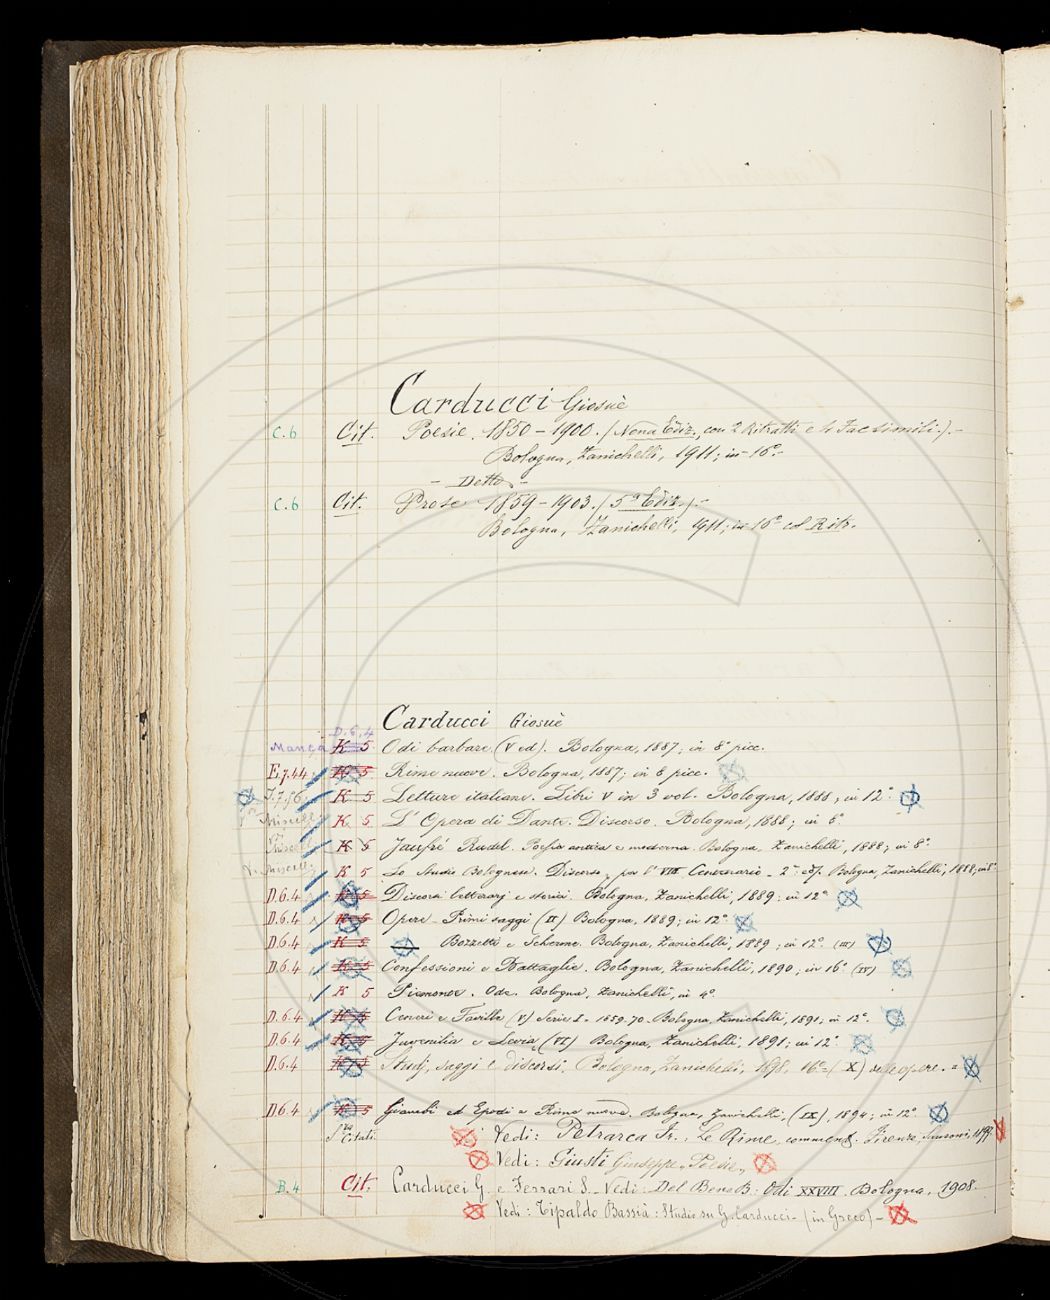 Carducci Giosuè
C. 6 Cit. Poesie. 1850 - 1900. (Nona Ediz., con 2 Ritratti e 4 Facsimili.). -
Bologna, Zanichelli, 1911; in 16° -
- Detto -
C. 6 Cit. Prose 1859 - 1903. (5ª Ediz.). -
Bologna, Zanichelli, 1911; in 16° Ritr.
Carducci Giosuè
D. 6. 4
Manca K 5 Odi barbare (V ed). Bologna, 1887; in 8° picc.
E. 7. 44 K 5 Rime nuove. Bologna, 1887; in 8 picc.
K 5 Letture italiane. Libri V in 3 vol. Bologna, 1888; in 12°.
Miscell. K 5 L' Opera di Dante. Discorso. Bologna, 1888; in 8°
Miscell. K 5 Jaufré Rudel. Poesia antica e moderna. Bologna, Zanichelli, 1888; in 8°.
V. Miscell. K 5 Lo Studio Bolognese. Discorso, per l' VIII Centenario. 2ª Bologna, Zanichelli, 1888; in 8°
D. 6. 4 K 5 Discorsi letterarj e storici. Bologna, Zanichelli, 1889; in 12°
D. 6. 4 K 5 Opere. Primi saggi (II) Bologna, 1889; in 12°
D. 6. 4 K 5 — Bozzetti e Scherme. Bologna, Zanichelli, 1889; in 12°. (III)
D. 6. 4 K 5 Confessioni e Battaglie. Bologna, Zanichelli, 1890; in 16° (IV)
K 5 Piemonte. Ode. Bologna, Zanichelli, in 4°.
D. 6. 4 K 5 Ceneri e Faville (V) Serie I - 1859-70. Bologna, Zanichelli, 1891; in 12°.
D. 6. 4 K 5 Juvenilia e Levia (VI) Bologna, Zanichelli, 1891; in 12°
D. 6. 4 K 5 Studj, Saggi e discorsi. Bologna, Zanichelli, 1898, 16° = (X) delle opere. =
D. 6. 4 K 5 Giambi ed Epodi e Rime nuove. Bologna, Zanichelli, (IX), 1894; in 12°
Citati Vedi: Petrarca Fr., Le Rime, Firenze, Sansoni, 1899
Vedi: Giusti Giuseppe „Poesie„
B. 4 Cit. Carducci G. e Ferrari S. - Vedi: Del Bene B: Odi XXVIII. Bologna, 1908.
Vedi: Tipaldo Bassià: Studio su G. Carducci - (in Greco) -